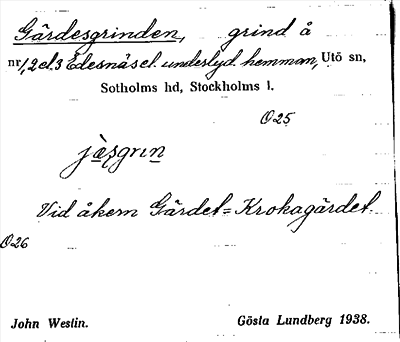 Gärdesgrinden, grind å
nr 1, 2 el. 3 Edesnäs el. underlyd. hemman, Utö sn,
Sotholms hd, Stockholms l.
O25
Vid åkern Gärdet = Krokagärdet.
O26
John Westin. Gösta Lundberg 1938.